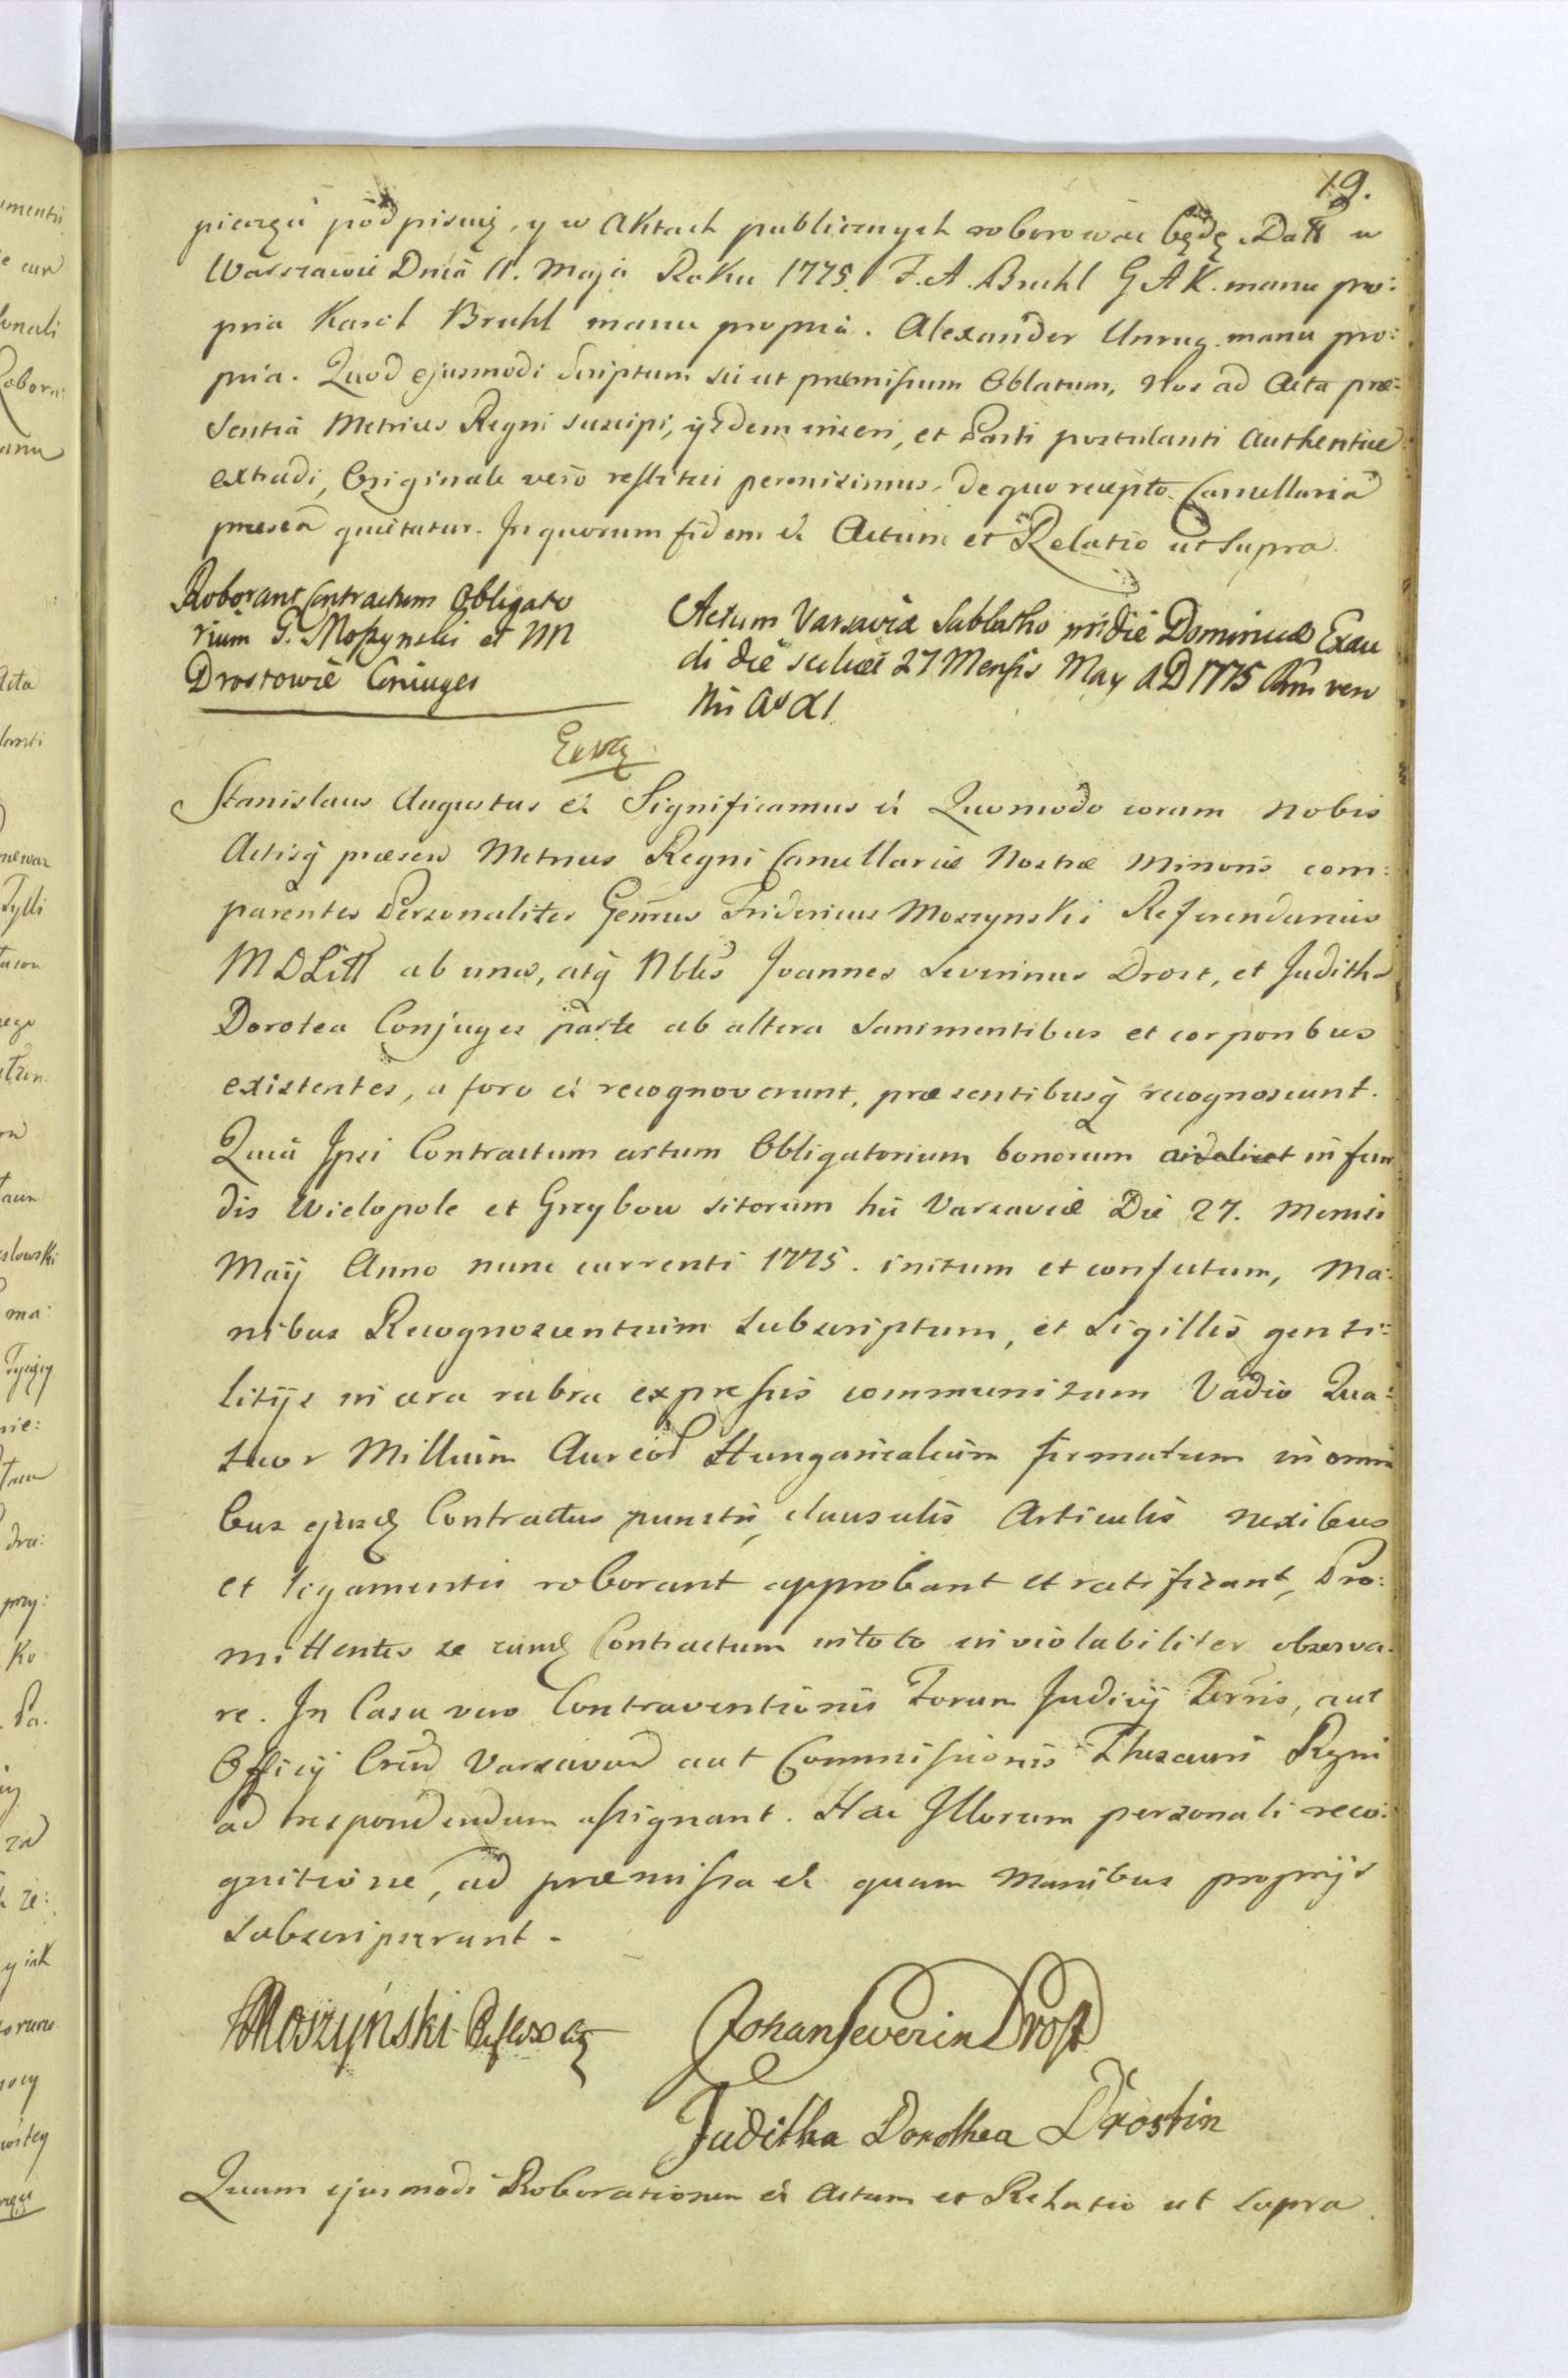 19.
pieczęć podpisuię, y w Aktach publicznych roborować będę. Datt w
Warszawie Dnia 11. Maja Roku 1775. F. A. Bruhl G A K. manu pro:
pria Karol Bruhl manu propria. Alexander Unrug manu pro:
pria. Quod ejusmodi Scriptum sic ut præmissum Oblatum, Nos ad Acta præ:
sentia Metrices Regni suscipi, ijsdem inseri, et Parti postulanti Authentice
extradi, Originale vero restitui permisimus, de quo recepto Cancellaria
præsen quietatur. In quorum fidem &c Actum et Relatio ut Supra.
Roborant Contractum Obligato
rium G. Moszynski et NN
Drostowie Coniuges
Actum Varsaviæ Sabbatho pridie Dominicæ Exau
di die scilicet 27 Mensis May A D 1775
Stanislaus Augustus &c Significamus &c Quomodo coram Nobis
Actisq præsen Metrices Regni Cancellariæ Nostræ Minoris com:
parentes Personaliter Genrus Fridericus Moszynski Referendarius
M D Litt ab una, atq Nbles Joannes Severinus Drost, et Juditha
Dorotea Conjuges parte ab altera sani mentibus et corporibus
existentes, a foro &c recognoverunt, præsentibusq recognoscunt.
Quia Ipsi Contractum certum Obligatorium bonorum in fun
dis Wielopole et Grzybow sitorum hic Varsaviæ Die 27. Mensis
Maij Anno nunc currenti 1775. initum et confectum, Ma:
nibus Recognoscentium subscriptum, et Sigillis genti:
litijs in cera rubra expressis communitum Vadio Qua:
tuor Millium Aureor Hungaricalium firmatum in omni
bus ejusd Contractus punctis, clausulis Articulis nexibus
et ligamentis roborant approbant et ratificant, Pro:
mittentes se eund Contractum in toto inviolabiliter observa:
re. In Casu vero Contraventionis Forum Judicij Terris, aut
Officij Cren Varsavien aut Commissionis Thesauri Regni
ad respondendum assignant. Hac Illorum personali reco:
gnitione, ad præmissa &c quam Manibus proprijs
subscripserunt.
Moszyński
Johan Severin Drost
Juditha Dorothea Drostin
Quam ejusmodi Roborationem &c Actum et Relatio ut Supra.